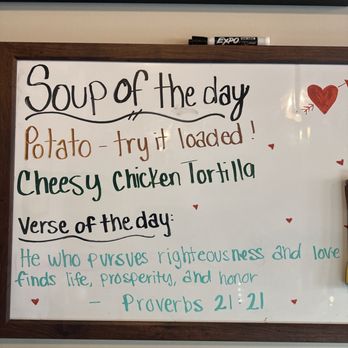 EXPO
Soup of the day
Potato - try it loaded!
Cheesy Chicken Tortilla
Verse of the day:
He who pursues righteousness and love
finds life, prosperity, and honor
- Proverbs 21:21